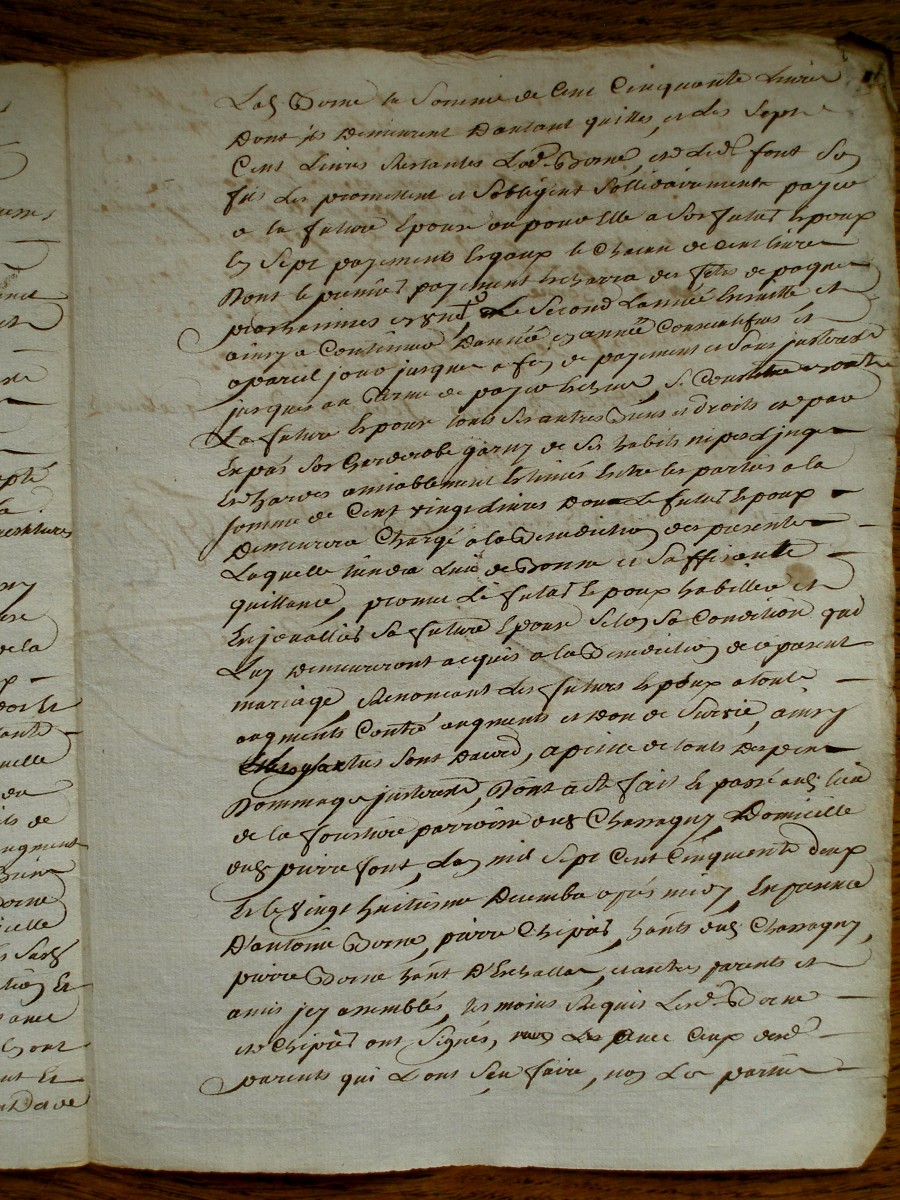 Lad Borne la Somme de Cent Cinquante Livres
Dont ils Demeurent Dautant quittes, et les Sept
Cent Livres Restantes Lad. Borne, et Led. font Son
fils Les promettent et Sobligent Sollidairement payer
a la future Epouse ou pour Elle a Son futur Epoux
En Sept payements Egaux de Chacun de Cent livres
Dont le premier payement Echerra des fetes de paques
prochaines en un an, Le Second Lannée Ensuitte et
ainsy a Continuer Dannée en année Consecutifves et
a pareil jour jusques a fin de payement et Sans jnterests
jusques au Terme de payer Echeu, Se Constitue en outre
La future Epouse touts Ses autres Biens et droits et de par
Exprés Son Garderobe garny de Ses habits nipes Linges
Et hardes amiablement Estimés Entre les parties a la
Somme de Cent vingt Livres Dont Le futur Epoux
Demeurera Chargé a la Benediction des presentes
Laquelle tiendra Lieu de Bonne et Suffisante
quittance, promet Le futur Epoux habiller et
Enjouallier Sa future Epouse Selon Sa Condition quil
Luy Demeureront acquis a la Benediction de ce present
mariage, Renonceant Les futurs Epoux a touts
augments Contre augments et Don de Survie, ainsy
Les parties Sont Dacord, a peine de touts Despens
Dommages jnterests, Dont acte fait Et passé aud. lieu
de la fousture parroisse dud Chassagny Domicille
dud pierre font, Lan mil Sept Cent Cinquante deux
Et le vingt huitieme Decembre apres midy En presence
D'antoine Borne, pierre Chipier, habts dud Chassagny,
pierre Borne habt D'Echallas, et autres parents et
amis jcy assemblés, tes moins Requis Lesd. Borne
et Chipier ont Signés, avec Ceux desd.
parents qui L'ont Sceu faire, non Les parties